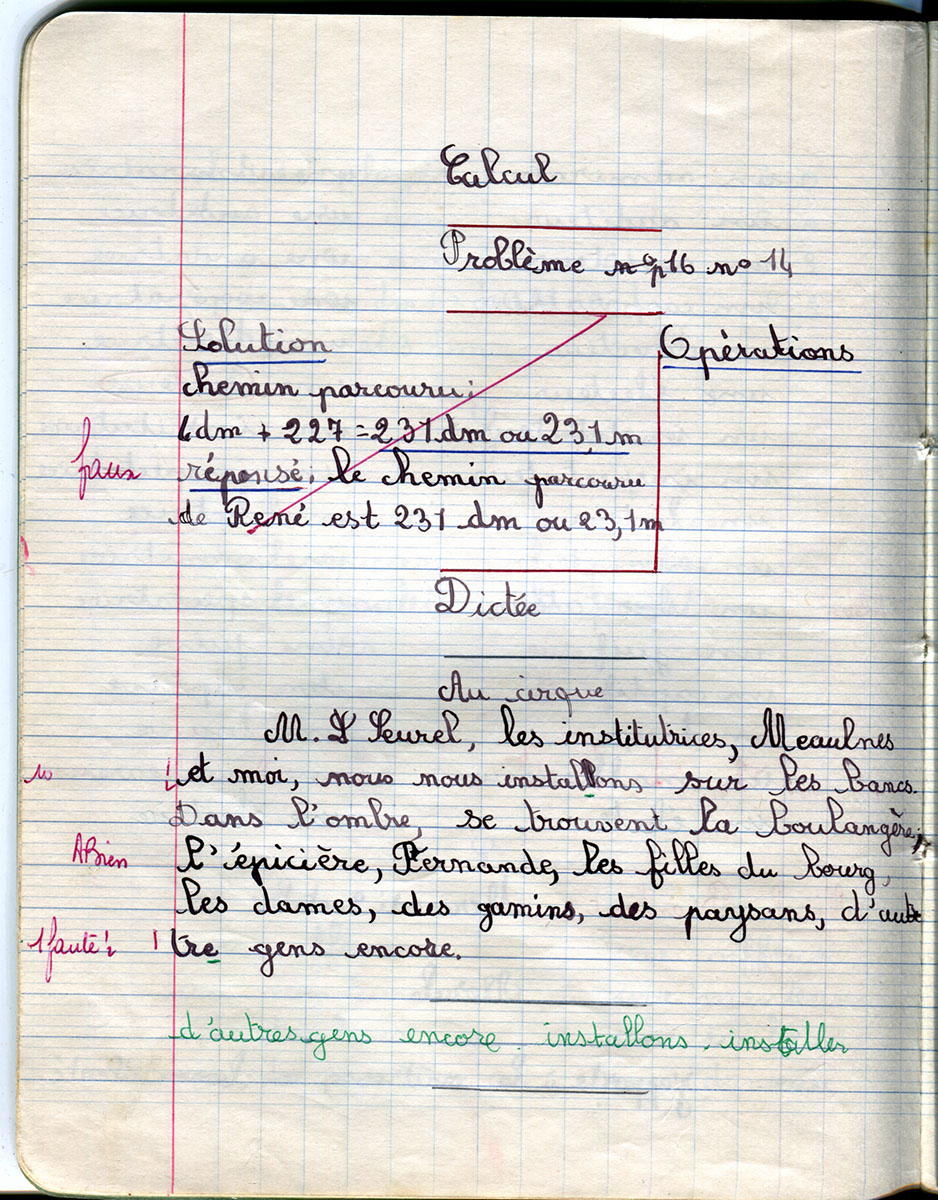 Calcul
Problème n° p16 n° 14
Solution
Opérations
chemin parcouru:
4dm + 227 = 231 dm ou 23,1 m
faux
réponse: le chemin parcouru
de René est 231 dm ou 23,1m
Dictée
Au cirque
M. S Seurel, les institutrices, Meaulnes
10 et moi, nous nous installons sur les bancs.
Dans l'ombre, se trouvent la boulangère,
ABien l'épicière, Fernande, les filles du bourg,
les dames, des gamins, des paysans, d'autre
1 faute tre gens encore.
d'autres gens encore. installons. installer